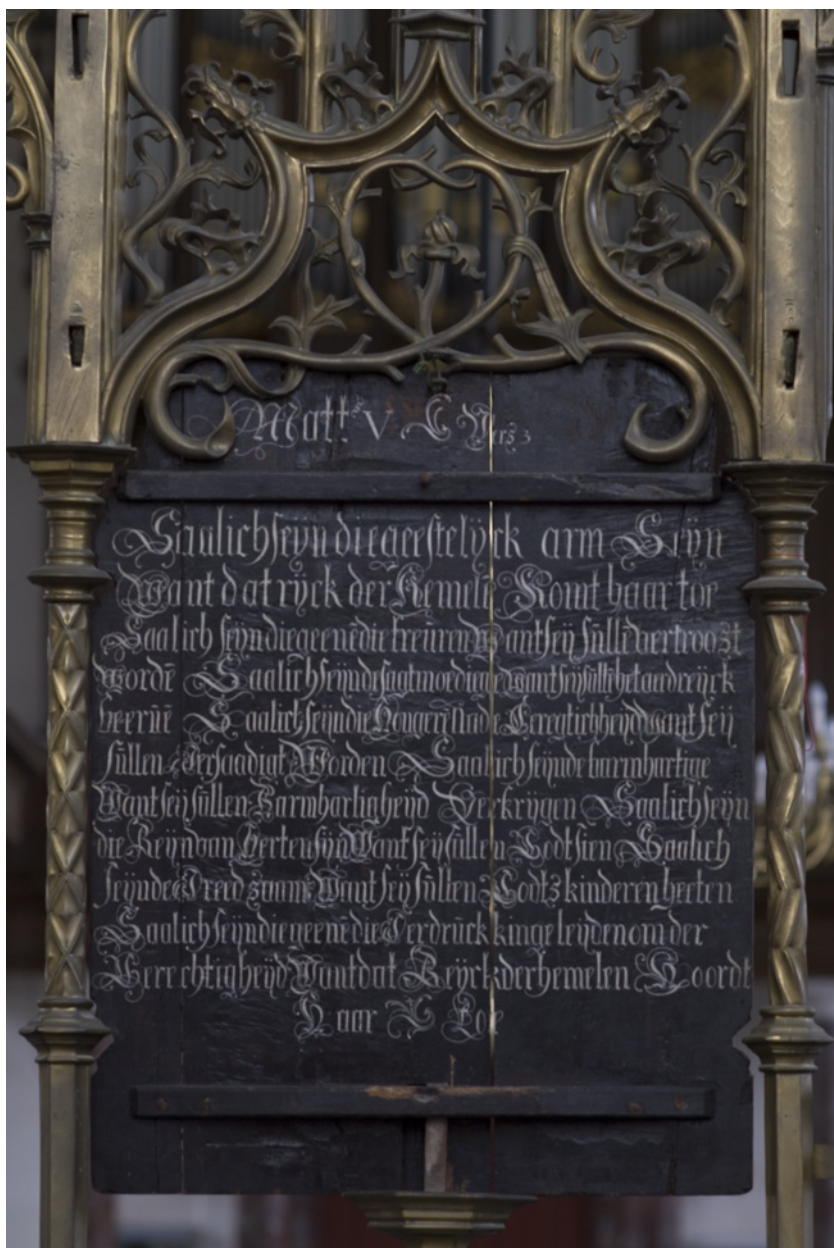 Matt V C Vers 3
Saalich seyn die geestelyck arm Seyn
Want dat ryck der Hemele Komt haar toe
Saalich seyn die geene die treuren Want sey sulle vertroost
wordē Saalich seyn de saatmoedige want sey sulle het aardreyck
beervē Saalich seyn die Hongert na de Geregtichheyd want sey
sullen Versaadigt Worden Saalich seyn de barmhartige
Want sey sullen Barmhartigheyd Verkrygen Saalich seyn
die Reyn van Herten syn Want sey sullen Godt sien Saalich
seyn de Vreedzaame Want sey sullen Godtz kinderen heeten
Saalich seyn die geene die Verdrucking leyden om der
Gerechtigheyd Want dat Reyck der hemelen Hoordt
Haar Toe